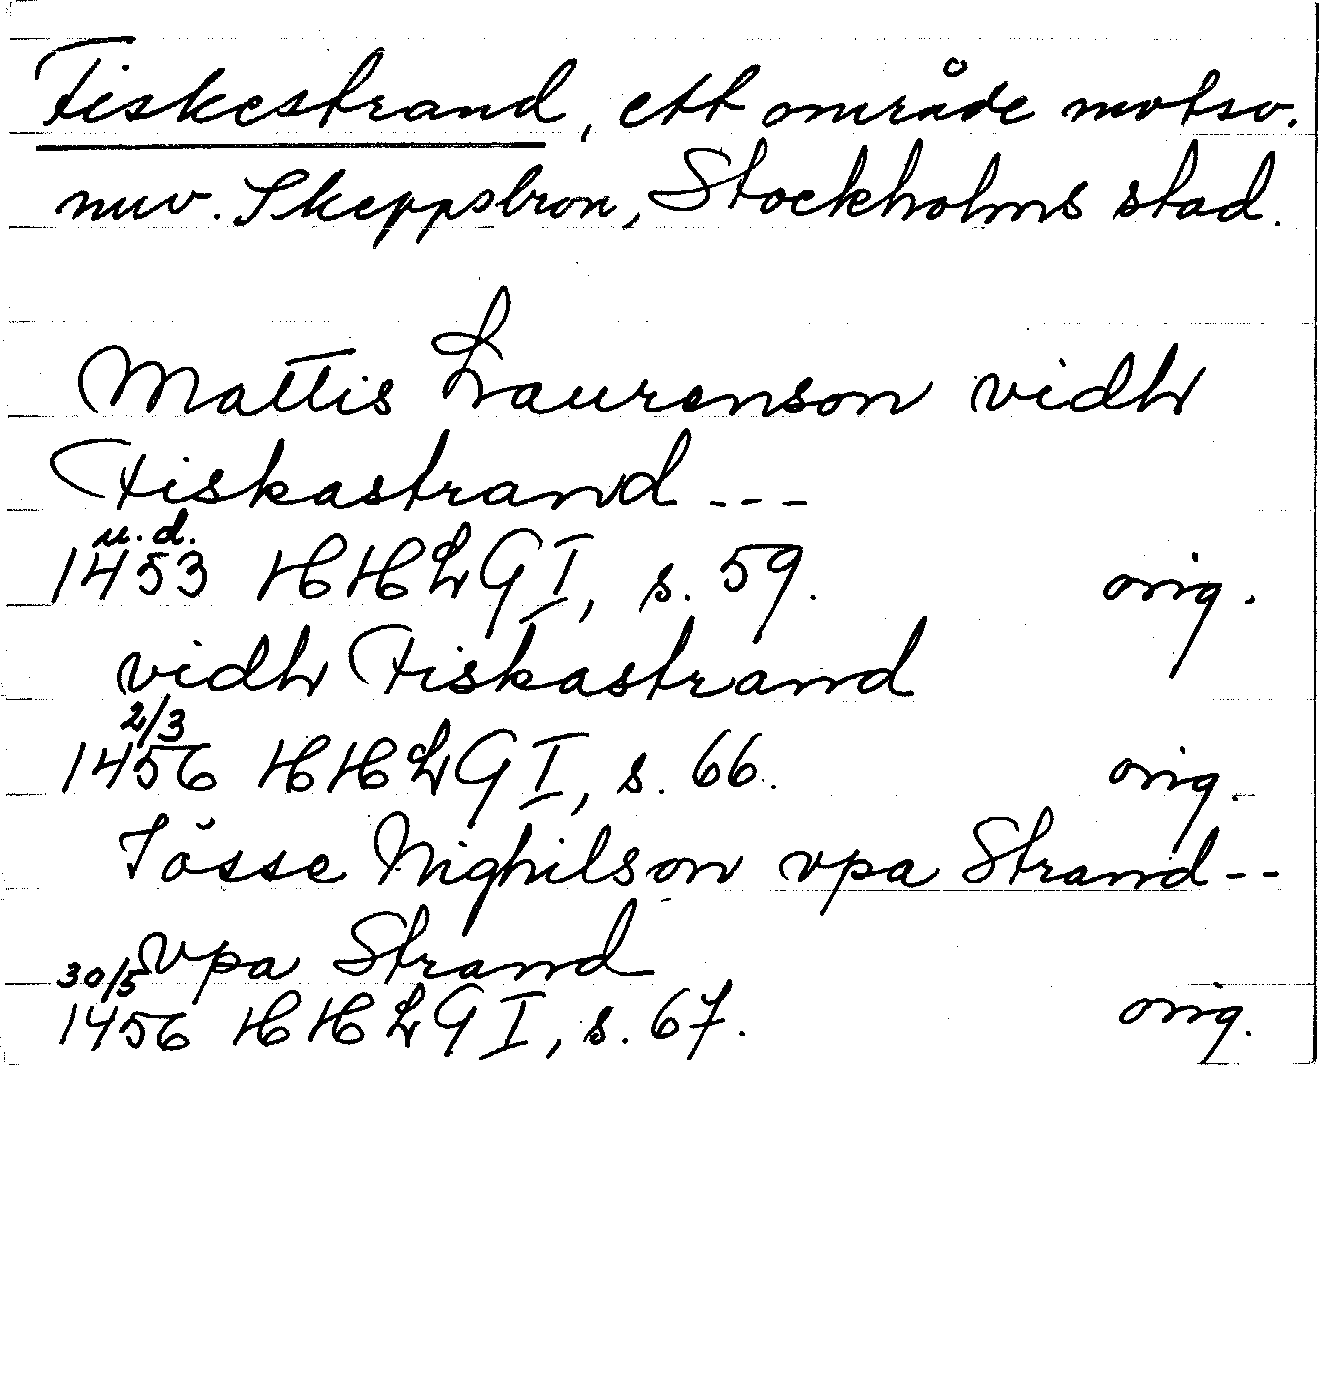 Fiskestrand, ett område motsv.
nuv. Skeppsbron, Stockholms stad.
Mattis Laurenson vidh
Fiskastrand ---
u.d.
1453 HHLG I, s. 59. orig.
vidh Fiskastrand
2/3
1456 HHLG I, s. 66. orig.
Jösse Nighilson vpa Strand--
vpa Strand
30/5
1456 HHLG I, s. 67. orig.